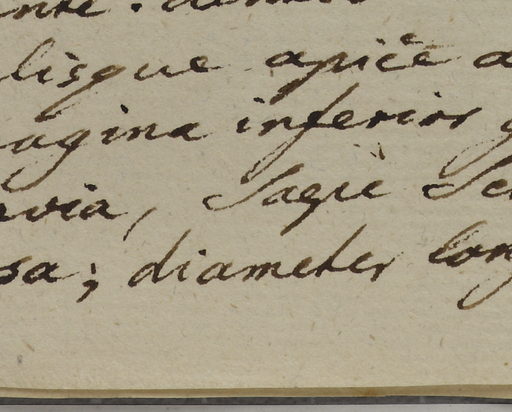 lisque apicè a
agina inferior g
via, Sæpè Se
sa; diameter long